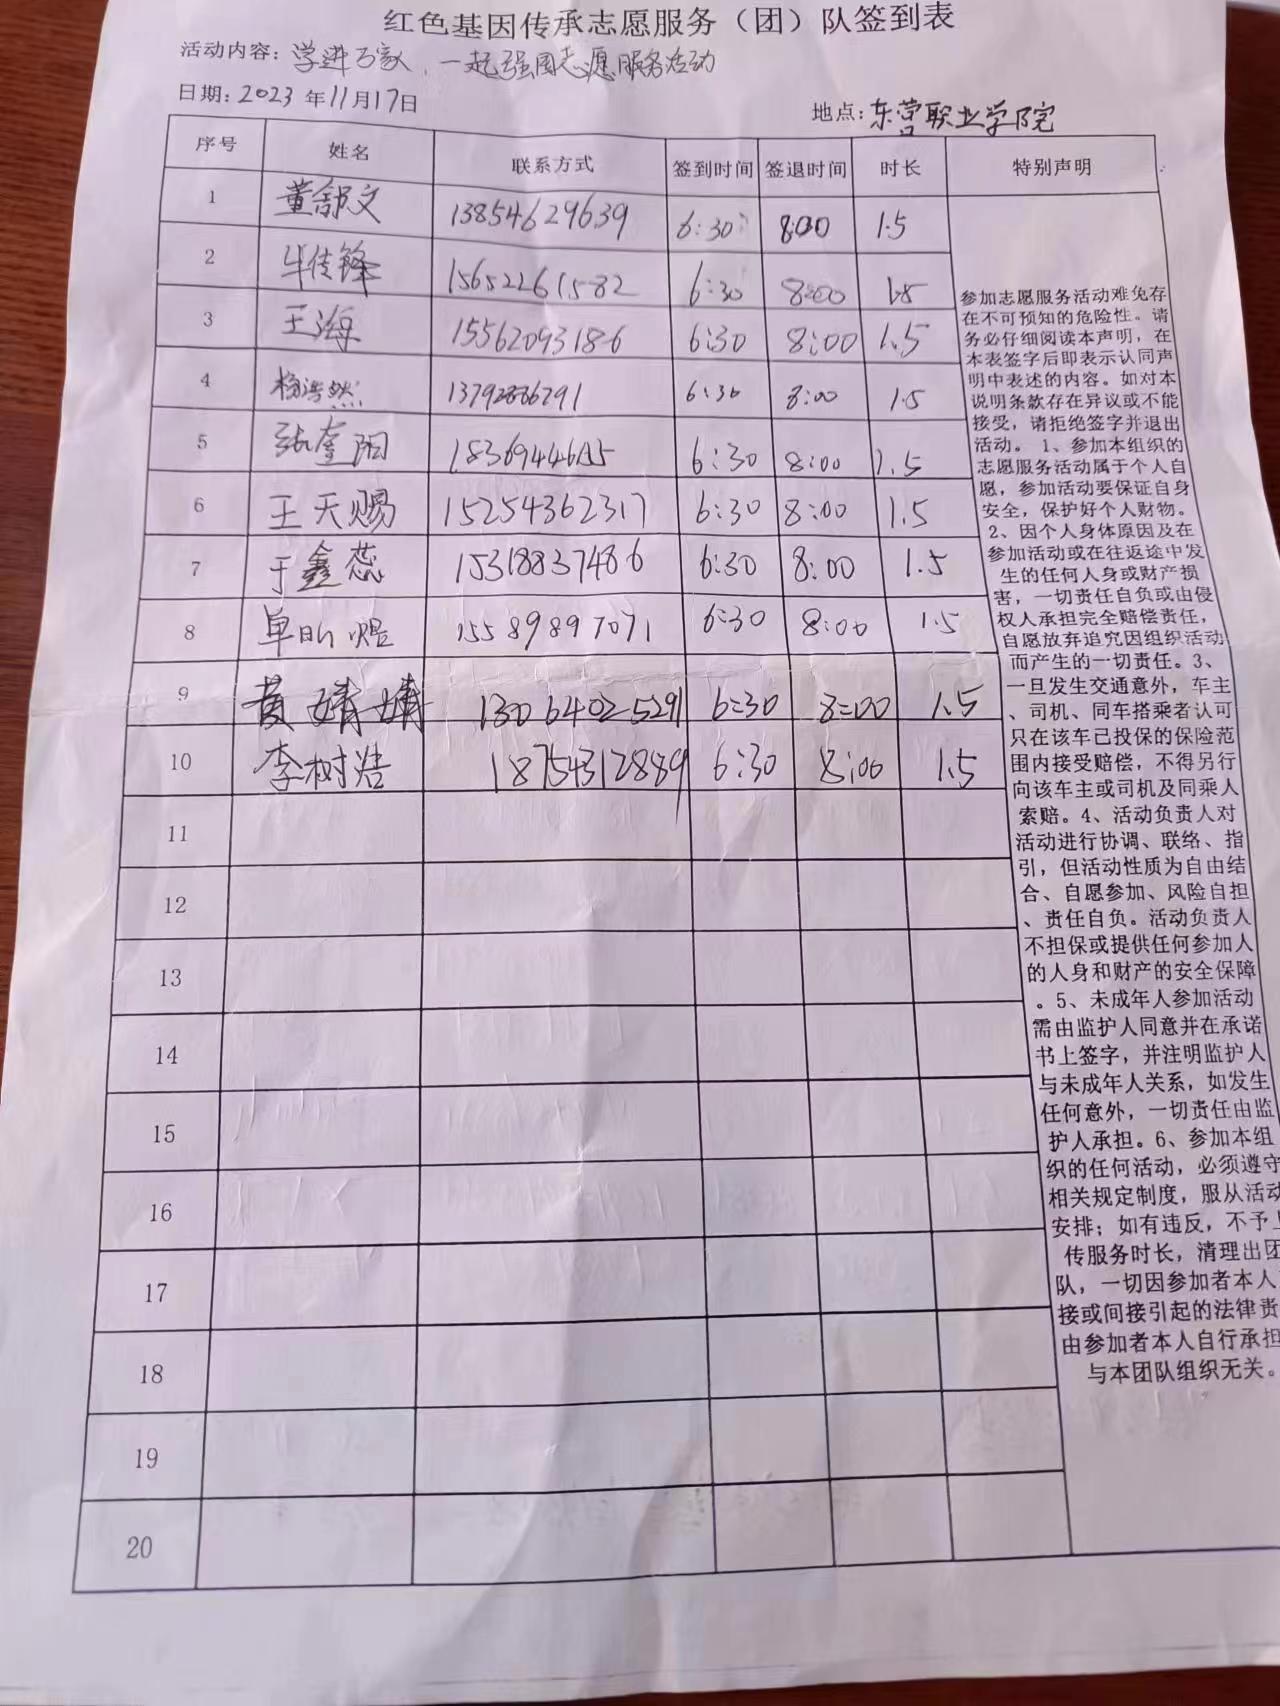 红色基因传承志愿服务（团）队签到表
活动内容：学进万家、一起强国志愿服务活动
日期：2023年11月17日
地点：东营职业学院
序号 姓名 联系方式 签到时间 签退时间 时长 特别声明
1 董舒文 13854629639 6:30 8:00 1.5
2 传锋 15652261582 6:30 8:00 1.5
3 王海 15562093186 6:30 8:00 1.5
4 杨浩然 6:30 8:00 1.5
5 张奎阳 6:30 8:00 1.5
6 王天赐 15254362317 6:30 8:00 1.5
7 于鑫蕊 15318837486 6:30 8:00 1.5
8 单 煜 15589897071 6:30 8:00 1.5
9 黄婧婧 13064025291 6:30 8:00 1.5
10 李树浩 18754312889 6:30 8:00 1.5
11
12
13
14
15
16
17
18
19
20
参加志愿服务活动难免存
在不可预知的危险性。请
务必仔细阅读本声明，在
本表签字后即表示认同声
明中表述的内容。如对本
说明条款存在异议或不能
接受，请拒绝签字并退出
活动。1、参加本组织的
志愿服务活动属于个人自
愿，参加活动要保证自身
安全，保护好个人财物。
2、因个人身体原因及在
参加活动或在往返途中发
生的任何人身或财产损
害，一切责任自负或由侵
权人承担完全赔偿责任，
自愿放弃追究因组织活动
而产生的一切责任。3、
一旦发生交通意外，车主
、司机、同车搭乘者认可
只在该车已投保的保险范
围内接受赔偿，不得另行
向该车主或司机及同乘人
索赔。4、活动负责人对
活动进行协调、联络、指
引，但活动性质为自由结
合、自愿参加、风险自担
、责任自负。活动负责人
不担保或提供任何参加人
的人身和财产的安全保障
。5、未成年人参加活动
需由监护人同意并在承诺
书上签字，并注明监护人
与未成年人关系，如发生
任何意外，一切责任由监
护人承担。6、参加本组
织的任何活动，必须遵守
相关规定制度，服从活动
安排；如有违反，不予上
传服务时长，清理出团
队，一切因参加者本人
接或间接引起的法律责
由参加者本人自行承担
与本团队组织无关。